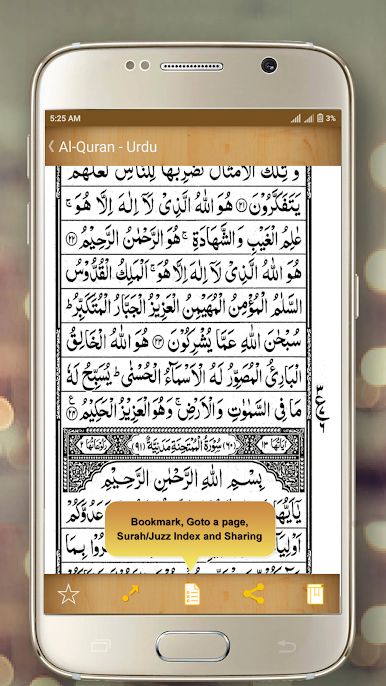 5:25 AM
3%
Al-Quran - Urdu
وَ تِلْكَ الْاَمْثَالُ نَضْرِبُهَا لِلنَّاسِ لَعَلَّهُمْ
يَتَفَكَّرُوْنَ ﴿۲۱﴾ هُوَ اللّٰهُ الَّذِيْ لَاۤ اِلٰهَ اِلَّا هُوَ ۚ
عٰلِمُ الْغَيْبِ وَالشَّهَادَةِ ۚ هُوَ الرَّحْمٰنُ الرَّحِيْمُ ﴿۲۲﴾
هُوَ اللّٰهُ الَّذِيْ لَاۤ اِلٰهَ اِلَّا هُوَ ۚ اَلْمَلِكُ الْقُدُّوْسُ
السَّلٰمُ الْمُؤْمِنُ الْمُهَيْمِنُ الْعَزِيْزُ الْجَبَّارُ الْمُتَكَبِّرُ ؕ
سُبْحٰنَ اللّٰهِ عَمَّا يُشْرِكُوْنَ ﴿۲۳﴾ هُوَ اللّٰهُ الْخَالِقُ
الْبَارِئُ الْمُصَوِّرُ لَهُ الْاَسْمَآءُ الْحُسْنٰى ؕ يُسَبِّحُ لَهٗ
مَا فِي السَّمٰوٰتِ وَالْاَرْضِ ۚ وَهُوَ الْعَزِيْزُ الْحَكِيْمُ ﴿۲۴﴾
ع
۶
اٰيَاتُهَا ۱۳ (۶۰) سُوْرَةُ الْمُمْتَحِنَةِ مَدَنِيَّةٌ (۹۱) رُكُوْعَاتُهَا ۲
بِسْمِ اللّٰهِ الرَّحْمٰنِ الرَّحِيْمِ
يٰۤاَيُّهَا عَدُوَّكُمْ
اَوْلِيَا بِمَا
Bookmark, Goto a page,
Surah/Juzz Index and Sharing